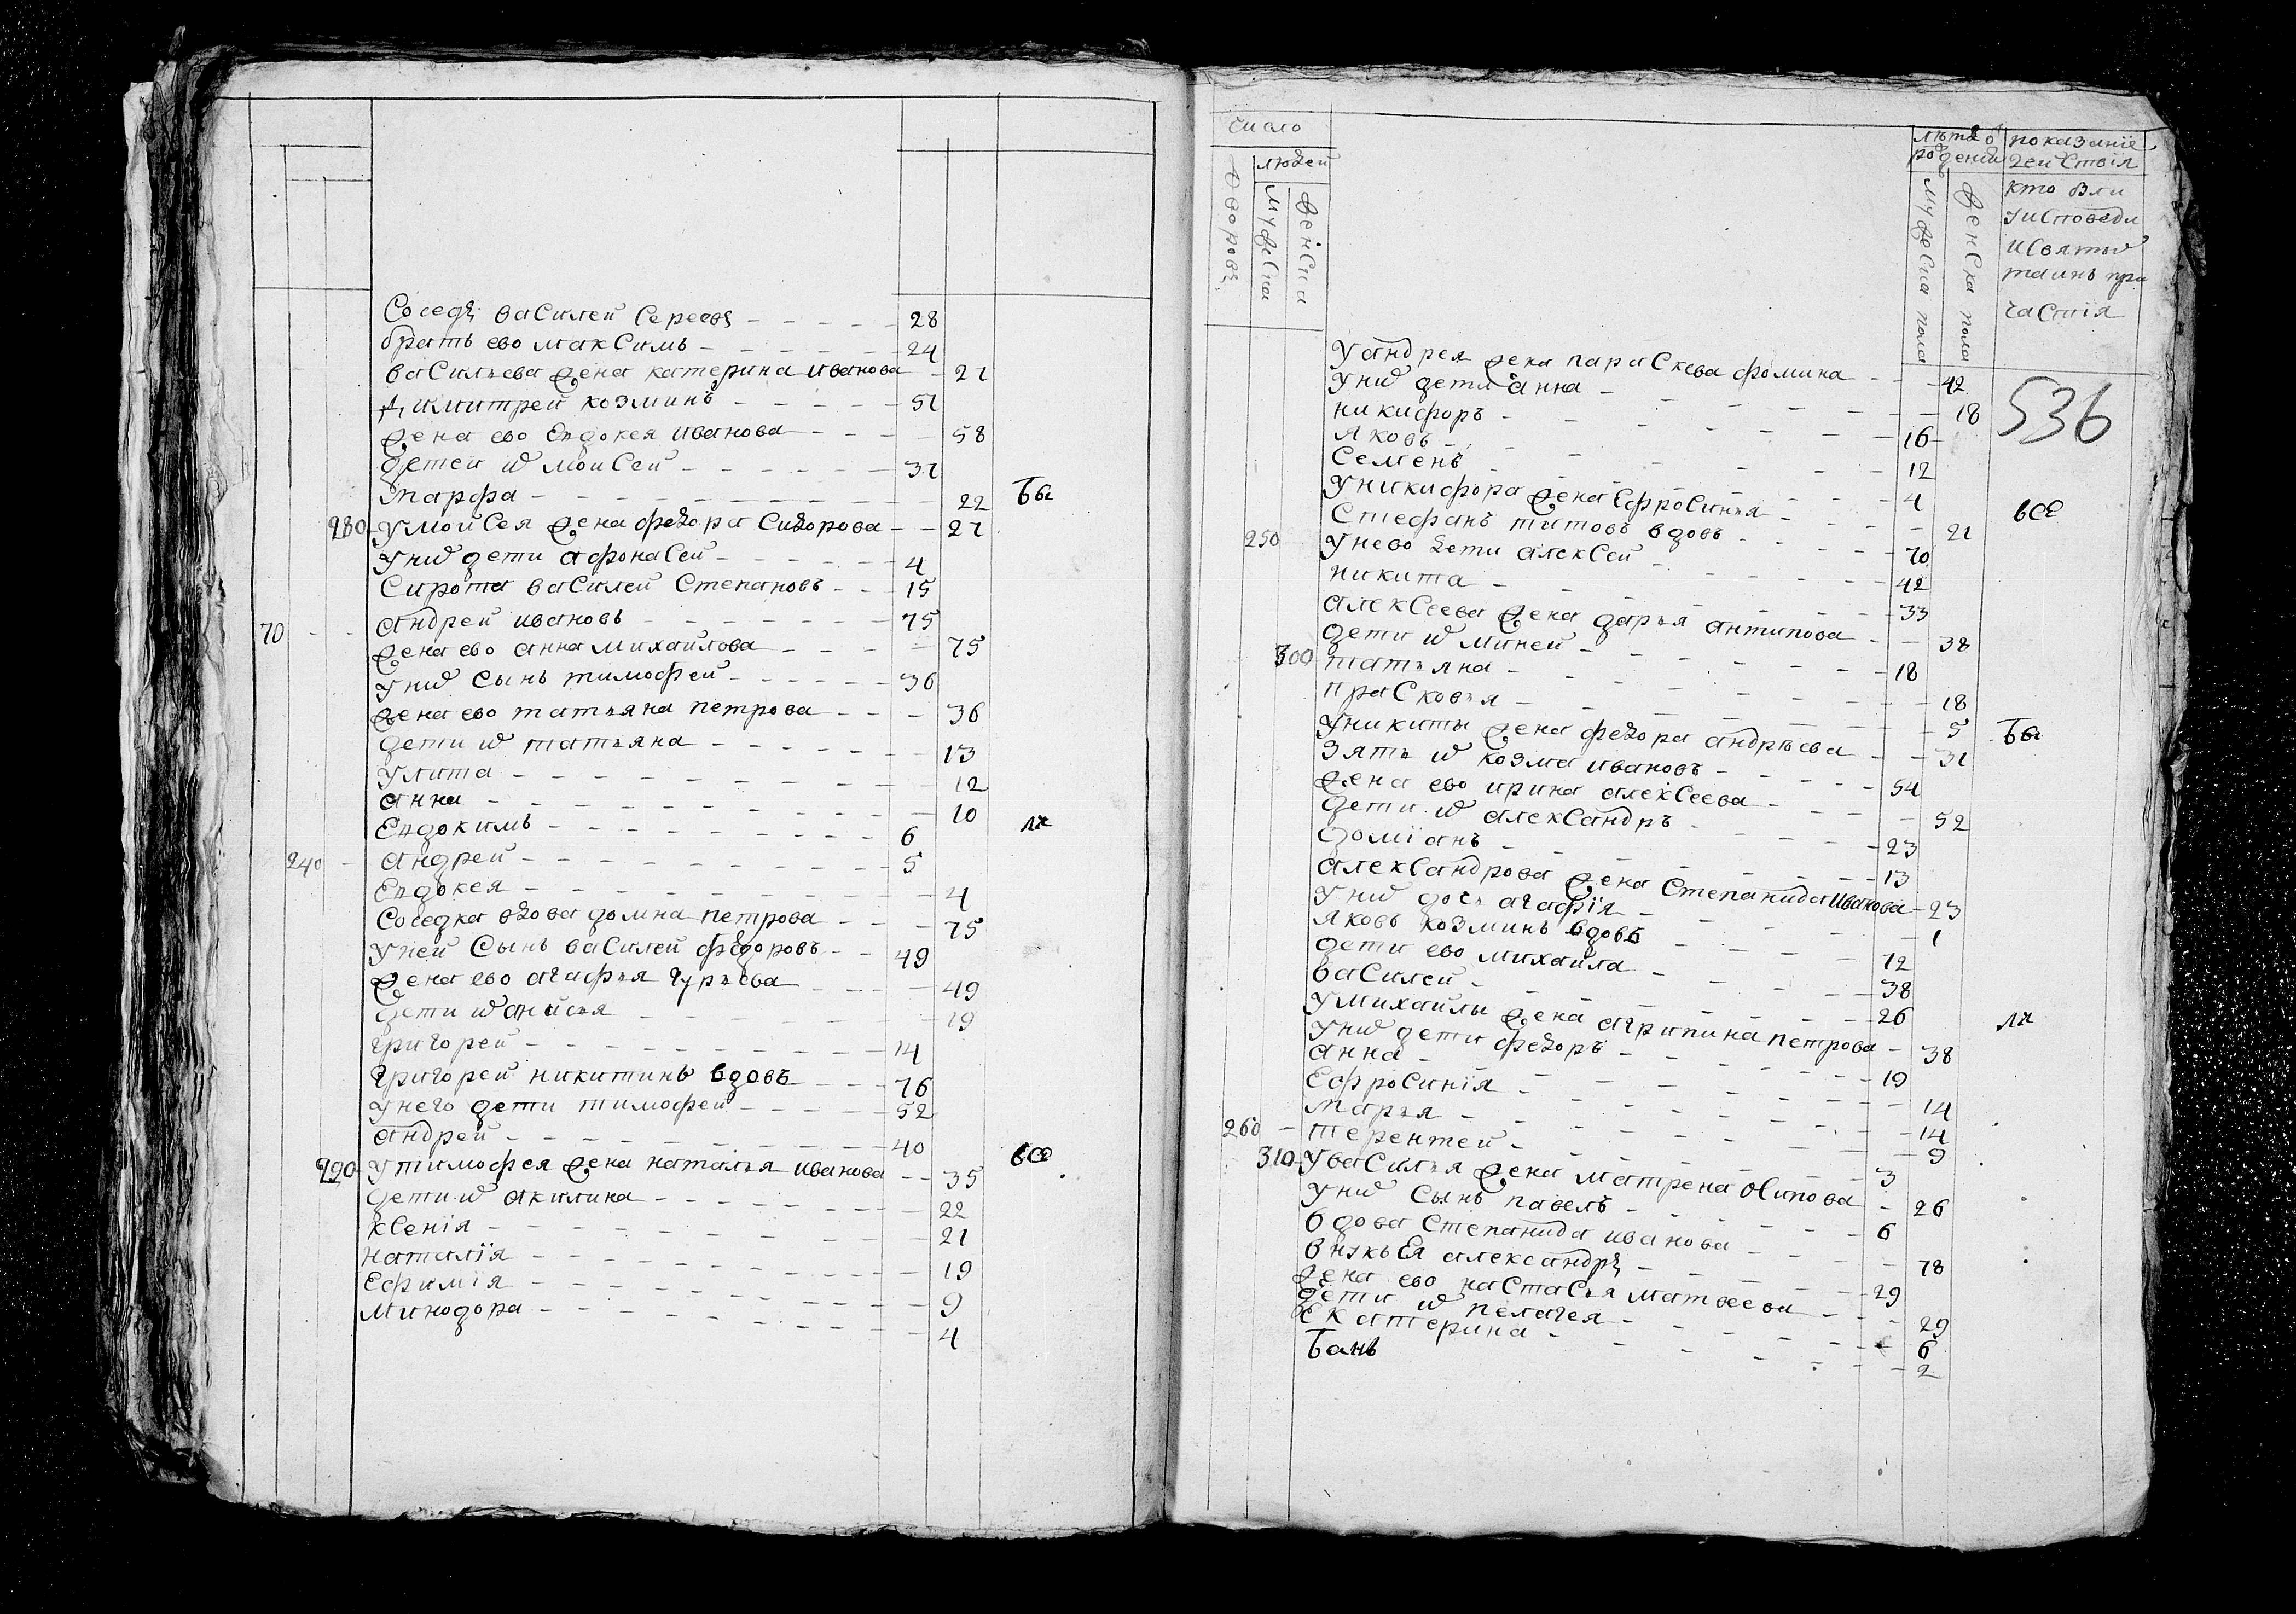 Соседъ василей Сергеевъ 28
братъ ево максимъ 24
васильева жена катерина иванова 21
димитрей козминъ 51
жена ево Евдокея иванова 58
детей их моисей 31
марфа 22 бы
280 У моисея жена федора Сидорова 21
У них дети афонасей 4
Сирота василей Степановъ 15
70 андрей ивановъ 75
жена ево анна михайлова 75
У них сынъ тимофей 36
жена ево татьяна петрова 36
дети их татьяна 13
Улита 12
анна 10
Евдокимъ 6 ли
240 андрей 5
Евдокея 4
Соседка вдова домна петрова 75
У ней сынъ василей федоровъ 49
жена ево агафья гурьева 49
дети их анисья 19
григорей 14
григорей никитинъ вдовъ 76
У него дети тимофей 52
андрей 40
290 У тимофея жена наталья иванова 35 все
дети их акилина 22
ксенія 21
наталія 19
Ефимія 9
Минодора 4
число
людей
дворовъ
мужеска
женска
лѣта о рождениі
мужеска пола
женска пола
показаніе действія
кто были у исповеди и святых таинъ причастія
536
У андрея жена параскева фомина 42
У них дети анна 18
никифоръ 16
яковъ 12
Семенъ 4
У никифора жена Ефросинья 21 все
250 Стефанъ титовъ вдовъ 70
У нево дети алексей 42
никита 33
алексеева жена дарья антипова 38
дети их миней 18
300 татьяна 18
прасковья 5
У никиты жена федора андрѣева 31 бы
зять их козма ивановъ 54
жена ево ирина алексеева 52
дети их александръ 23
доміанъ 13
александрова жена Степанида иванова 23
У них дочь агафія 1
яковъ козминъ вдовъ 72
дети ево михайла 38
василей 26
У михайлы жена агрипина петрова 38 ли
У них дети федоръ 19
анна 14
Ефросинія 14
марья 9
260 терентей 3
310 У василья жена матрена осипова 26
У них сынъ павелъ 6
вдова Степанида иванова 78
внукъ Ея александръ 29
жена ево настасья матвеева 29
дети их пелагея 6
Екатерина 2
банъ